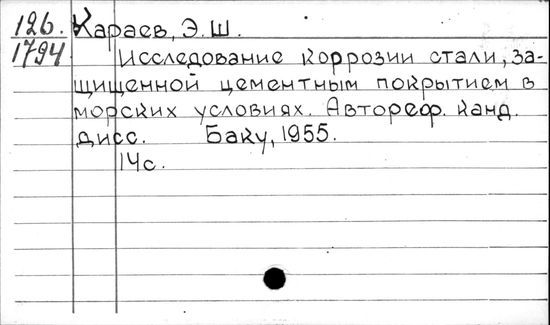 126. Караев, Э.Ш.
1794 Исследование коррозии стали, за-
щищенной цементным покрытием в
морских условиях. Автореф. канд.
дисс. Баку, 1955.
14с.